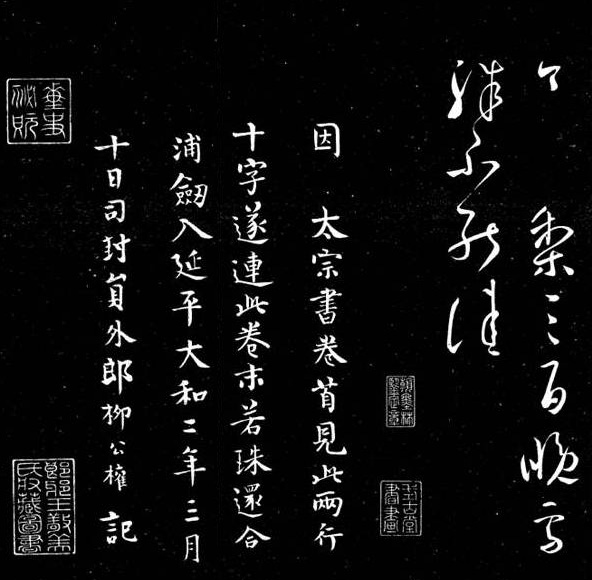 今 梨三百晚雪
殊不能佳
式古堂書畫
因 太宗書卷首見此兩行
十字遂連此卷末若珠還合
浦劒入延平大和二年三月
十日司封員外郎柳公權 記
琅邪王敬美氏收藏圖書